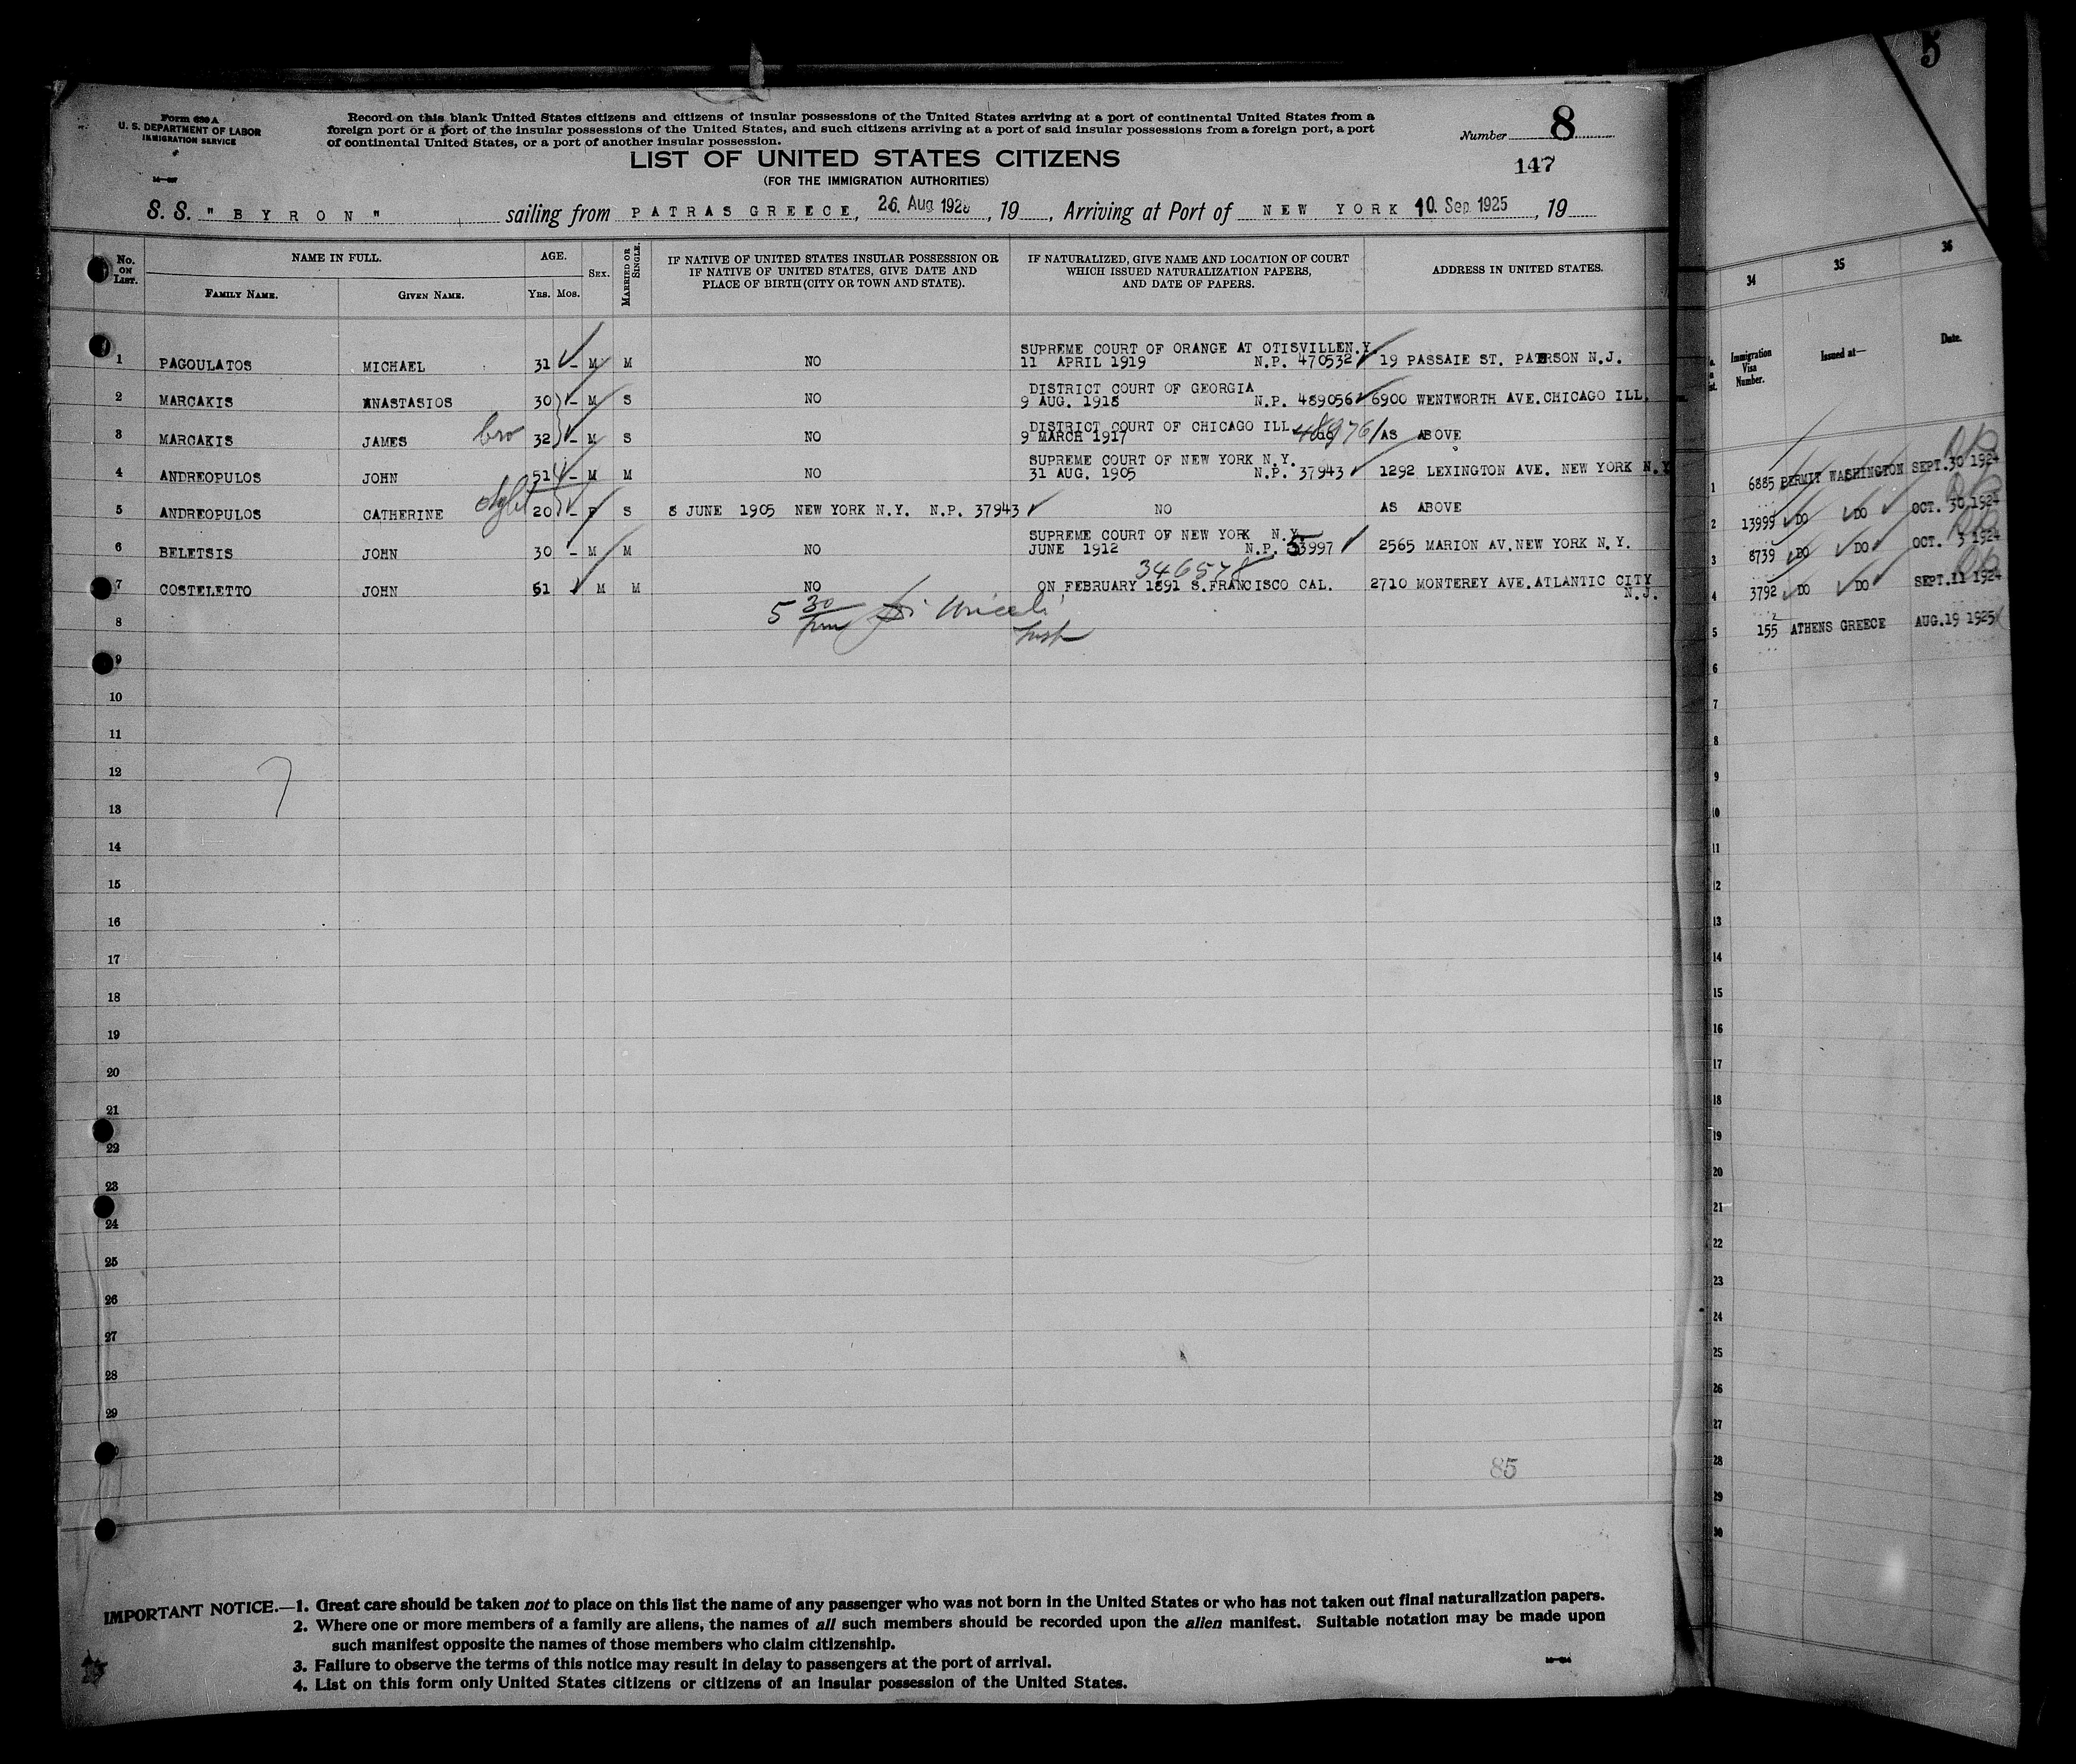 Form 630 A
U. S. DEPARTMENT OF LABOR
IMMIGRATION SERVICE
Record on this blank United States citizens and citizens of insular possessions of the United States arriving at a port of continental United States from a
foreign port or a port of the insular possessions of the United States, and such citizens arriving at a port of said insular possessions from a foreign port, a port
of continental United States, or a port of another insular possession.
Number 8
147
LIST OF UNITED STATES CITIZENS
(FOR THE IMMIGRATION AUTHORITIES)
S. S. "BYRON" sailing from PATRAS GREECE, 26. Aug 1925, 19, Arriving at Port of NEW YORK 10. Sep 1925, 19
No. ON LIST. NAME IN FULL. AGE. SEX. MARRIED OR SINGLE. IF NATIVE OF UNITED STATES INSULAR POSSESSION OR IF NATIVE OF UNITED STATES, GIVE DATE AND PLACE OF BIRTH (CITY OR TOWN AND STATE). IF NATURALIZED, GIVE NAME AND LOCATION OF COURT WHICH ISSUED NATURALIZATION PAPERS, AND DATE OF PAPERS. ADDRESS IN UNITED STATES.
FAMILY NAME. GIVEN NAME. YRS. MOS.
SUPREME COURT OF ORANGE AT OTISVILLEN.Y.
1 PAGOULATOS MICHAEL 31 - M M NO 11 APRIL 1919 N.P. 470532 19 PASSAIE ST. PATERSON N.J.
DISTRICT COURT OF GEORGIA
2 MARCAKIS ANASTASIOS 30 - M S NO 9 AUG. 1918 N.P. 489056 6900 WENTWORTH AVE. CHICAGO ILL.
DISTRICT COURT OF CHICAGO ILL
3 MARCAKIS JAMES bro 32 - M S NO 9 MARCH 1917 AS ABOVE
SUPREME COURT OF NEW YORK N.Y.
4 ANDREOPULOS JOHN 51 - M M NO 31 AUG. 1905 N.P. 37943 1292 LEXINGTON AVE. NEW YORK N.Y
5 ANDREOPULOS CATHERINE 20 - F S 8 JUNE 1905 NEW YORK N.Y. N.P. 37943 NO AS ABOVE
SUPREME COURT OF NEW YORK N.Y.
6 BELETSIS JOHN 30 - M M NO JUNE 1912 N.P. 53997 2565 MARION AV. NEW YORK N.Y.
346578
7 COSTELETTO JOHN 51 M M NO ON FEBRUARY 1891 S.FRANCISCO CAL. 2710 MONTEREY AVE. ATLANTIC CITY
N.J.
5 30 pm
8
Insp
9
10
11
12
13
14
15
16
17
18
19
20
21
22
23
24
25
26
27
28
29
7
85
IMPORTANT NOTICE.—1. Great care should be taken not to place on this list the name of any passenger who was not born in the United States or who has not taken out final naturalization papers.
2. Where one or more members of a family are aliens, the names of all such members should be recorded upon the alien manifest. Suitable notation may be made upon
such manifest opposite the names of those members who claim citizenship.
3. Failure to observe the terms of this notice may result in delay to passengers at the port of arrival.
4. List on this form only United States citizens or citizens of an insular possession of the United States.
5
34 35 36
Immigration Visa Number. Issued at— Date.
1 6885 PERMIT WASHINGTON SEPT. 30 1924
2 13999 DO DO OCT. 30 1924
3 8739 DO DO OCT. 3 1924
4 3792 DO DO SEPT. 11 1924
5 155 ATHENS GREECE AUG. 19 1925
6
7
8
9
10
11
12
13
14
15
16
17
18
19
20
21
22
23
24
25
26
27
28
29
30